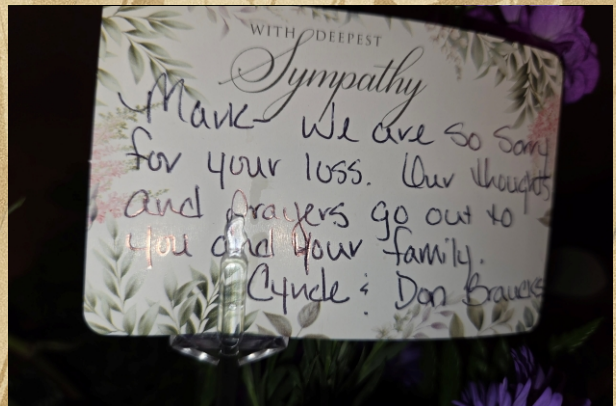 WITH DEEPEST
Sympathy
Mark- We are so sorry
for your loss. Our thoughts
and prayers go out to
you and your family.
Cynde & Don